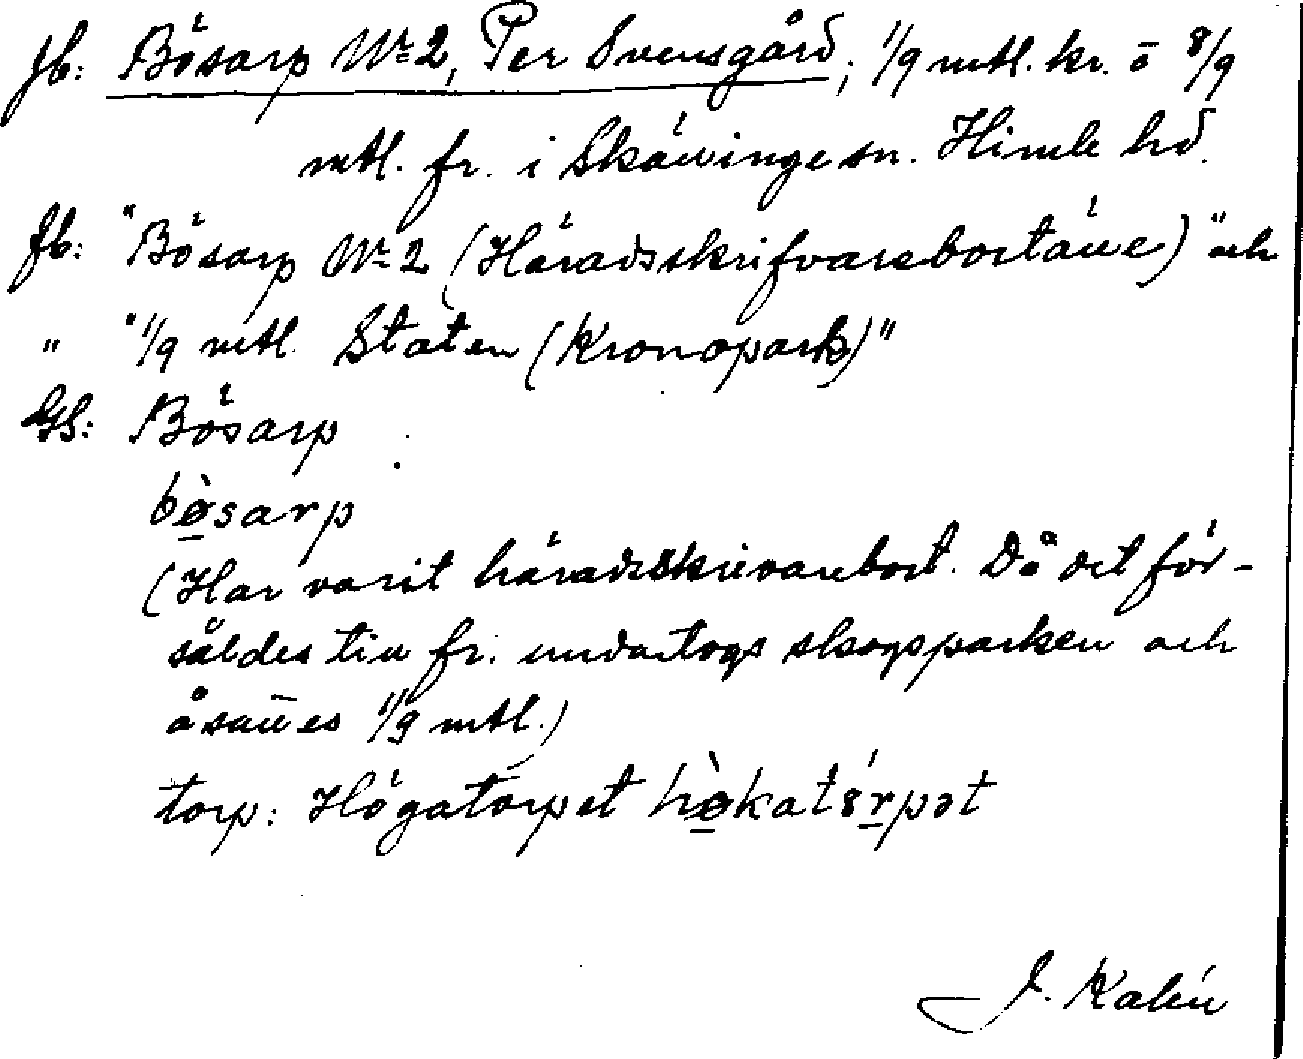 Jb: Bösarp No 2, Per Svensgård; 1/9 mtl. kr. o 8/9
mtl. fr. i Skällinge sn. Himle hd.
Jb: "Bösarp No 2 (Häradsskrifvareboställe)" och
" "1/9 mtl. Staten (Kronopark)"
GS: Bösarp
bø̀sarp
(Har varit häradsskrivarebost. Då det för-
såldes till fr. undantogs skogsparken och
åsattes 1/9 mtl.)
torp: Högatorpet hø̀katórpət
J. Kalén